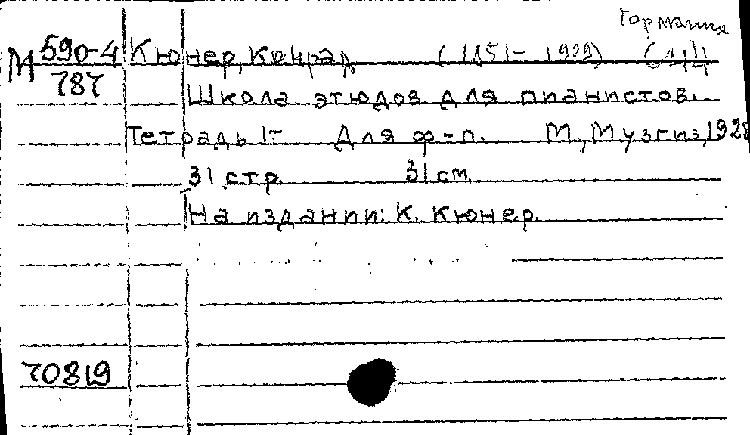 Германия
М 590-4 Кюнер, Конрад (1851-1922)
787 Школа этюдов для пианистов.
Тетрадь 1- Для ф-п. М., Музгиз, 1928
31 стр. 31 см.
На издании: К. Кюнер.
70819